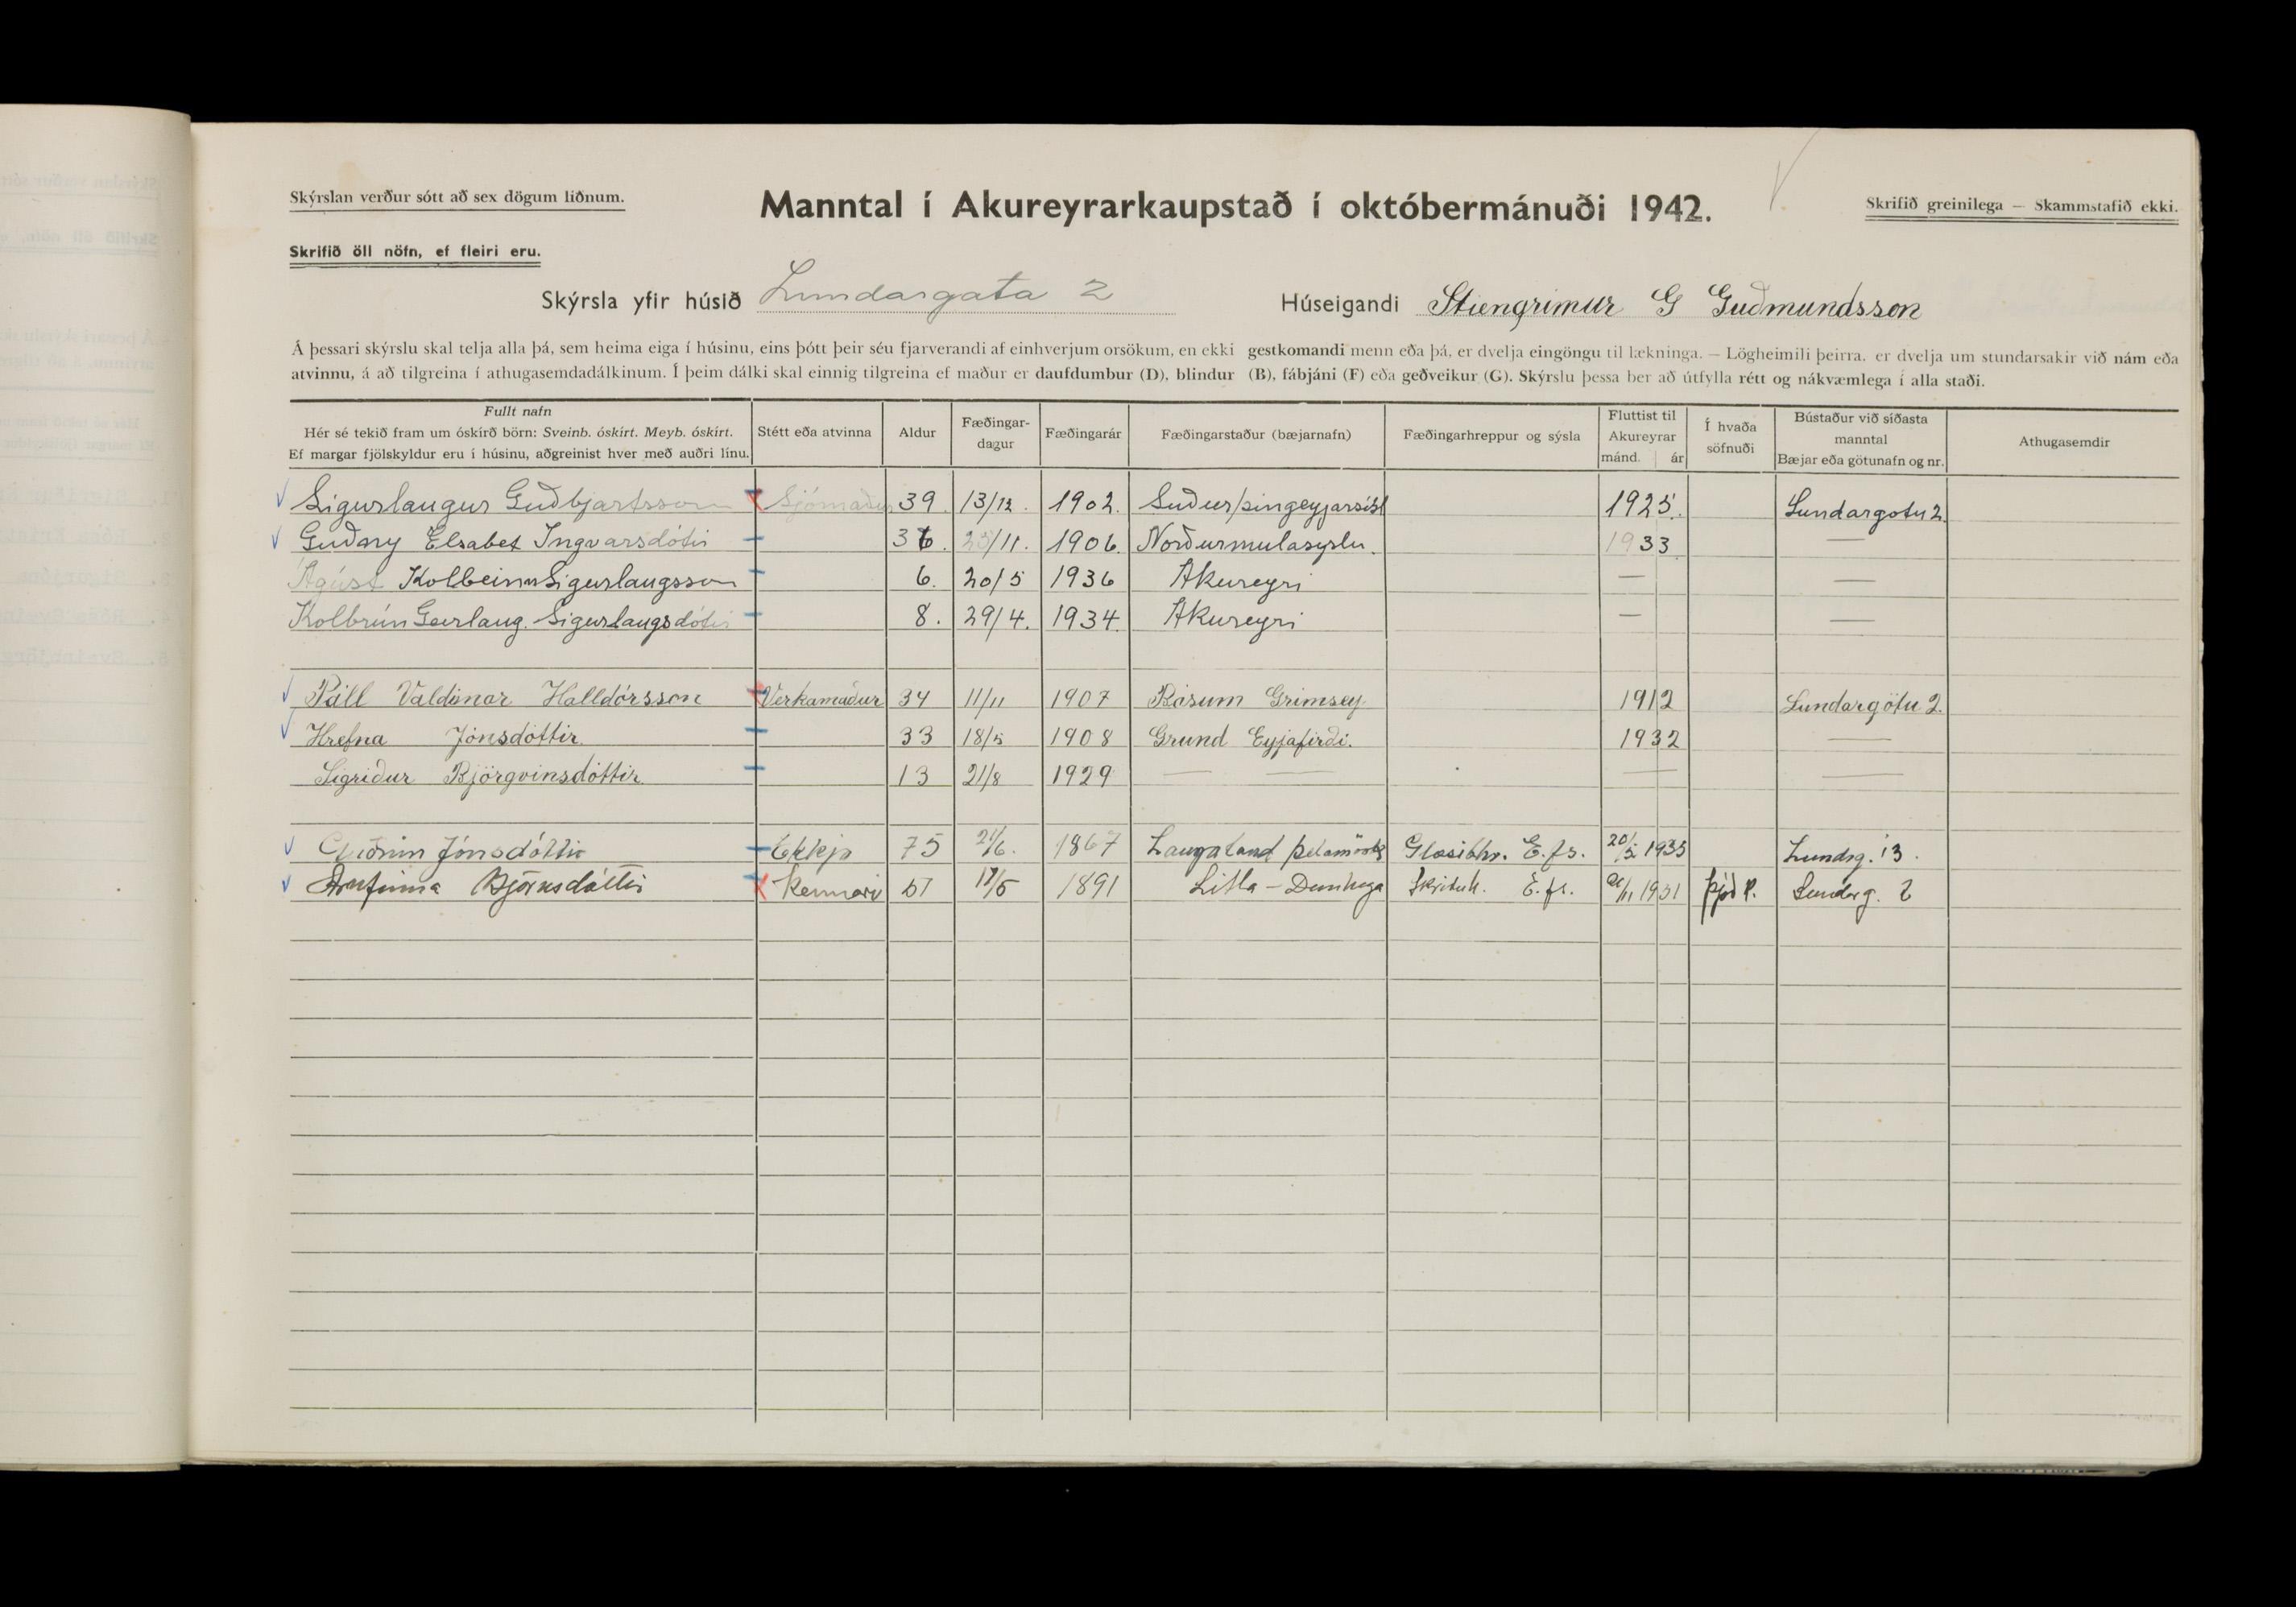 Skýrslan verður sótt að sex dögum liðnum.
Manntal í Akureyrarkaupstað í októbermánuði 1942.
Skrifið greinilega — Skammstafið ekki.
Skrifið öll nöfn, ef fleiri eru.
Skýrsla yfir húsið Lundargata 2 Húseigandi Stiengrimur G Guðmundsson
Á þessari skýrslu skal telja alla þá, sem heima eiga í húsinu, eins þótt þeir séu fjarverandi af einhverjum orsökum, en ekki gestkomandi menn eða þá, er dvelja eingöngu til lækninga. — Lögheimili þeirra, er dvelja um stundarsakir við nám eða
atvinnu, á að tilgreina í athugasemdadálkinum. Í þeim dálki skal einnig tilgreina ef maður er daufdumbur (D), blindur (B), fábjáni (F) eða geðveikur (G). Skýrslu þessa ber að útfylla rétt og nákvæmlega í alla staði.
Fullt nafn
Hér sé tekið fram um óskírð börn: Sveinb. óskírt. Meyb. óskírt.
Ef margar fjölskyldur eru í húsinu, aðgreinist hver með auðri línu.
Stétt eða atvinna
Aldur
Fæðingar-
dagur
Fæðingarár
Fæðingarstaður (bæjarnafn)
Fæðingarhreppur og sýsla
Fluttist til
Akureyrar
mánd. ár
Í hvaða
söfnuði
Bústaður við síðasta
manntal
Bæjar eða götunafn og nr.
Athugasemdir
Sigurlaugur Guðbjartsson Sjómaður 39 13/12. 1902. Suður/þingeyjarsísl 1925. Lundargotu 2.
Guðny Elsabet Ingvarsdótir 36. 25/11. 1906. Norðurmulasyslu. 1933 —
Ágúst Kolbeinn Sigurlaugsson 6. 20/5 1936 Akureyri — —
Kolbrún Geirlaug. Sigurlaugsdótir 8. 29/4. 1934. Akureyri — —
Páll Valdimar Halldórsson Verkamaður 34 11/11 1907 Básum Grímsey. 1912 Lundargötu 2.
Hrefna Jónsdóttir. 33 18/5 1908 Grund Eyjafirði. 1932 —
Sigriður Björgvinsdóttir 13 21/8 1929 — — — —
Guðrún Jónsdóttir Ekkja 75 21/6. 1867 Laugaland Þelamörk Glæsibhr. E.fs. 20/5 1935 Lundsg. 13.
Arnfinna Björnsdóttir Kennari 51 17/5 1891 Litla-Dunhaga Skriðuh. E.fs. 1931 Þjóðk. Lundarg. 2